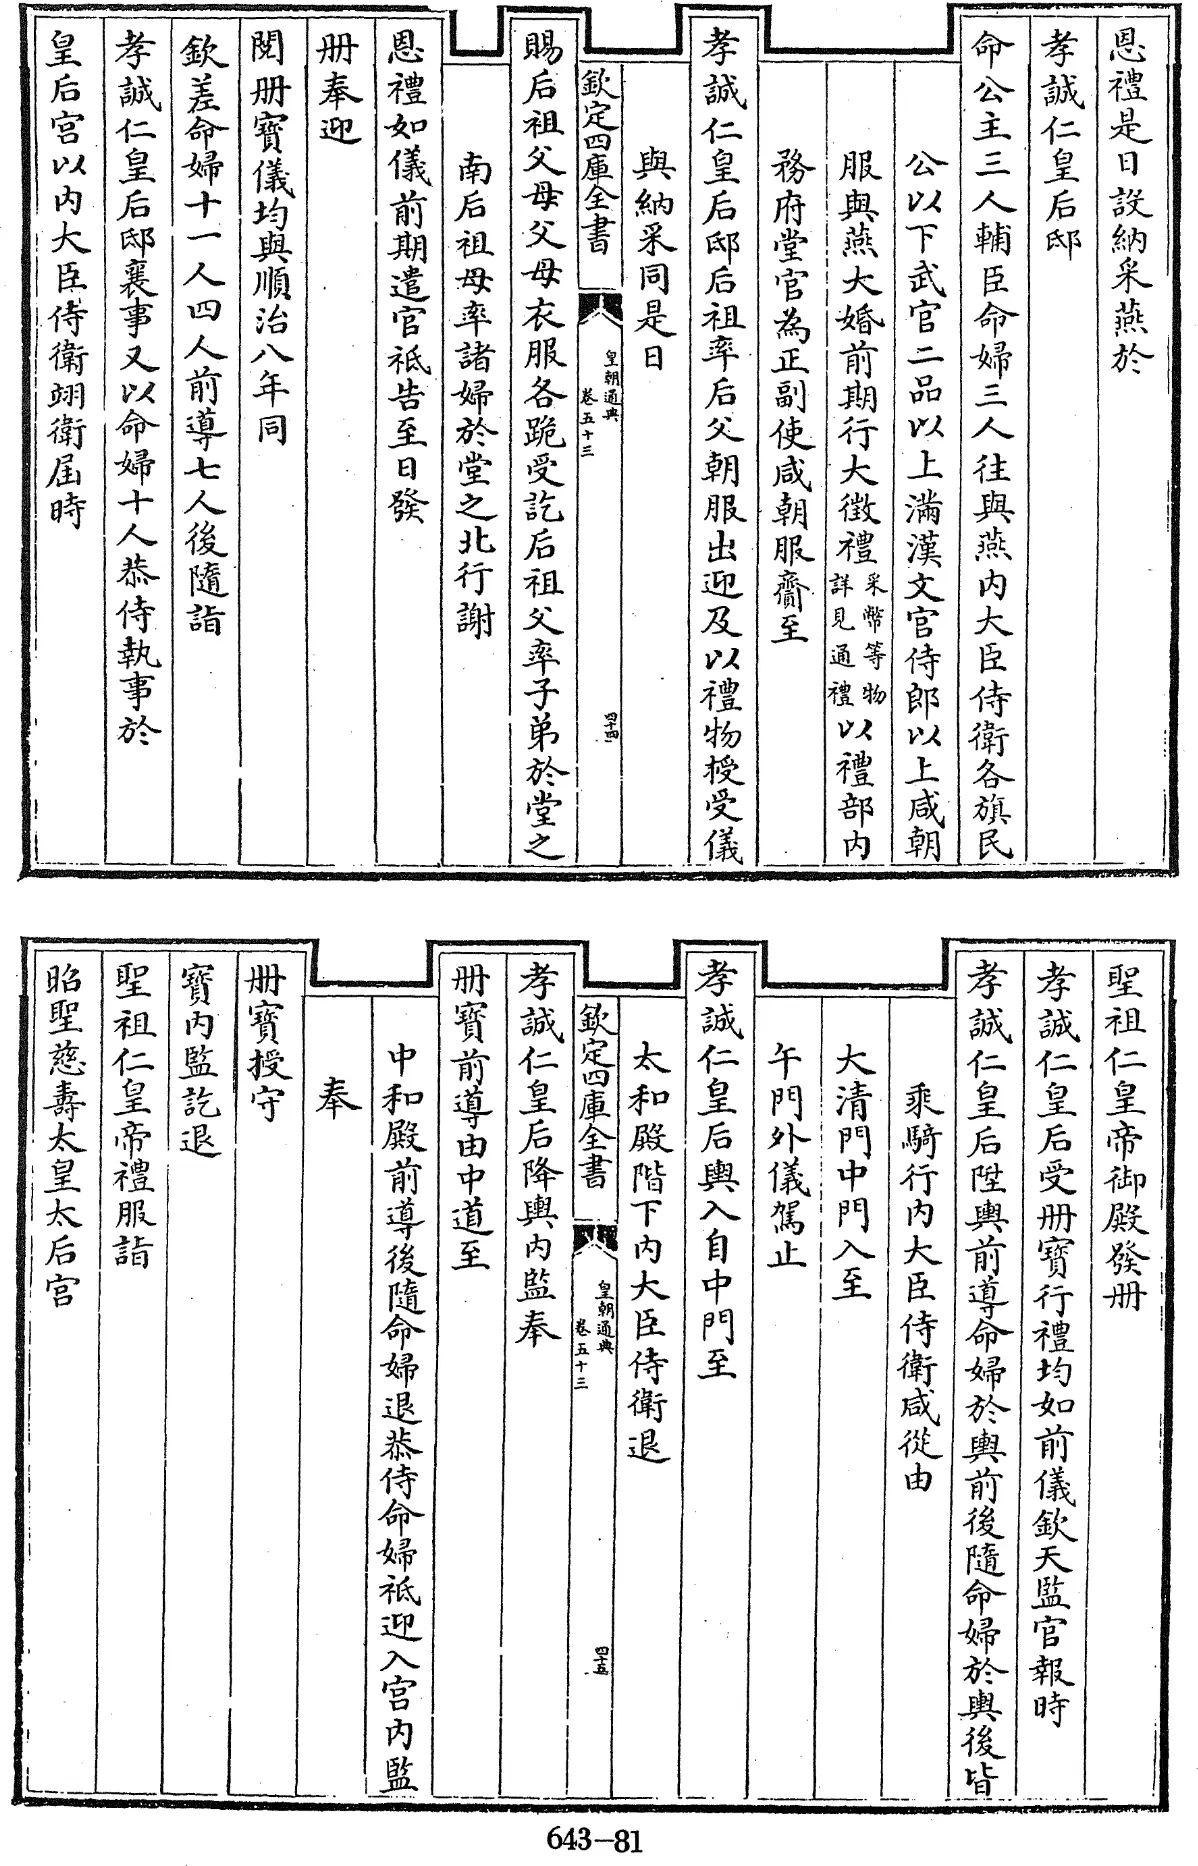 恩禮是日設納采燕於
孝誠仁皇后邸
命公主三人輔臣命婦三人往與燕内大臣侍衛各旗民
公以下武官二品以上滿漢文官侍郎以上咸朝
服與燕大婚前期行大徵禮采幣等物詳見通禮以禮部内
務府堂官為正副使咸朝服齎至
孝誠仁皇后邸后祖率后父朝服出迎及以禮物授受儀
與納采同是日
欽定四庫全書
皇朝通典
卷五十三
四十四
賜后祖父母父母衣服各跪受訖后祖父率子弟於堂之
南后祖母率諸婦於堂之北行謝
恩禮如儀前期遣官祇告至日發
册奉迎
閱册寶儀均與順治八年同
欽差命婦十一人四人前導七人後隨詣
孝誠仁皇后邸襄事又以命婦十人恭侍執事於
皇后宫以内大臣侍衛翊衛届時
聖祖仁皇帝御殿發册
孝誠仁皇后受册寶行禮均如前儀欽天監官報時
孝誠仁皇后陞輿前導命婦於輿前後隨命婦於輿後皆
乘騎行内大臣侍衛咸從由
大清門中門入至
午門外儀駕止
孝誠仁皇后輿入自中門至
太和殿階下内大臣侍衛退
欽定四庫全書
皇朝通典
卷五十三
四十五
孝誠仁皇后降輿内監奉
册寶前導由中道至
中和殿前導後隨命婦退恭侍命婦祇迎入宫内監
奉
册寶授守
寶内監訖退
聖祖仁皇帝禮服詣
昭聖慈壽太皇太后宫
643-81